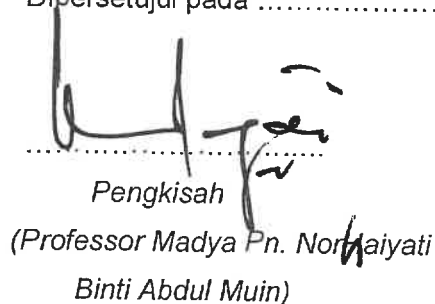 Dipersetujui pada ......................
..........................................
Pengkisah
(Professor Madya Pn. Norhaiyati
Binti Abdul Muin)